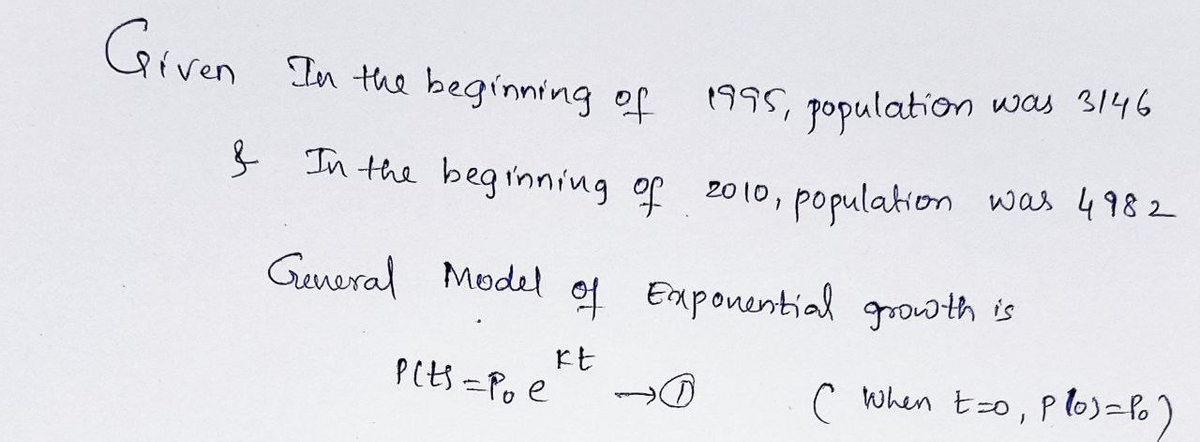 Given In the beginning of 1995, population was 3146
& In the beginning of 2010, population was 4982
General Model of Exponential growth is
P(t) = P₀ e^{kt} → ① ( When t=0, P(0)=P₀ )